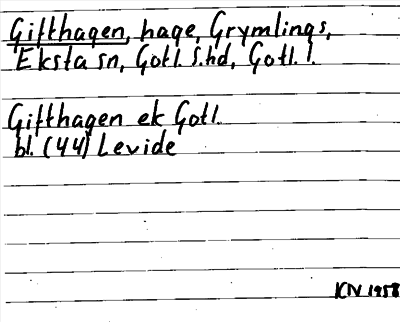 Gifthagen, hage, Grymlings,
Eksta sn, Gotl. S. hd, Gotl. l.
Gifthagen ek Gotl.
bl. (44) Levide
KN 1958